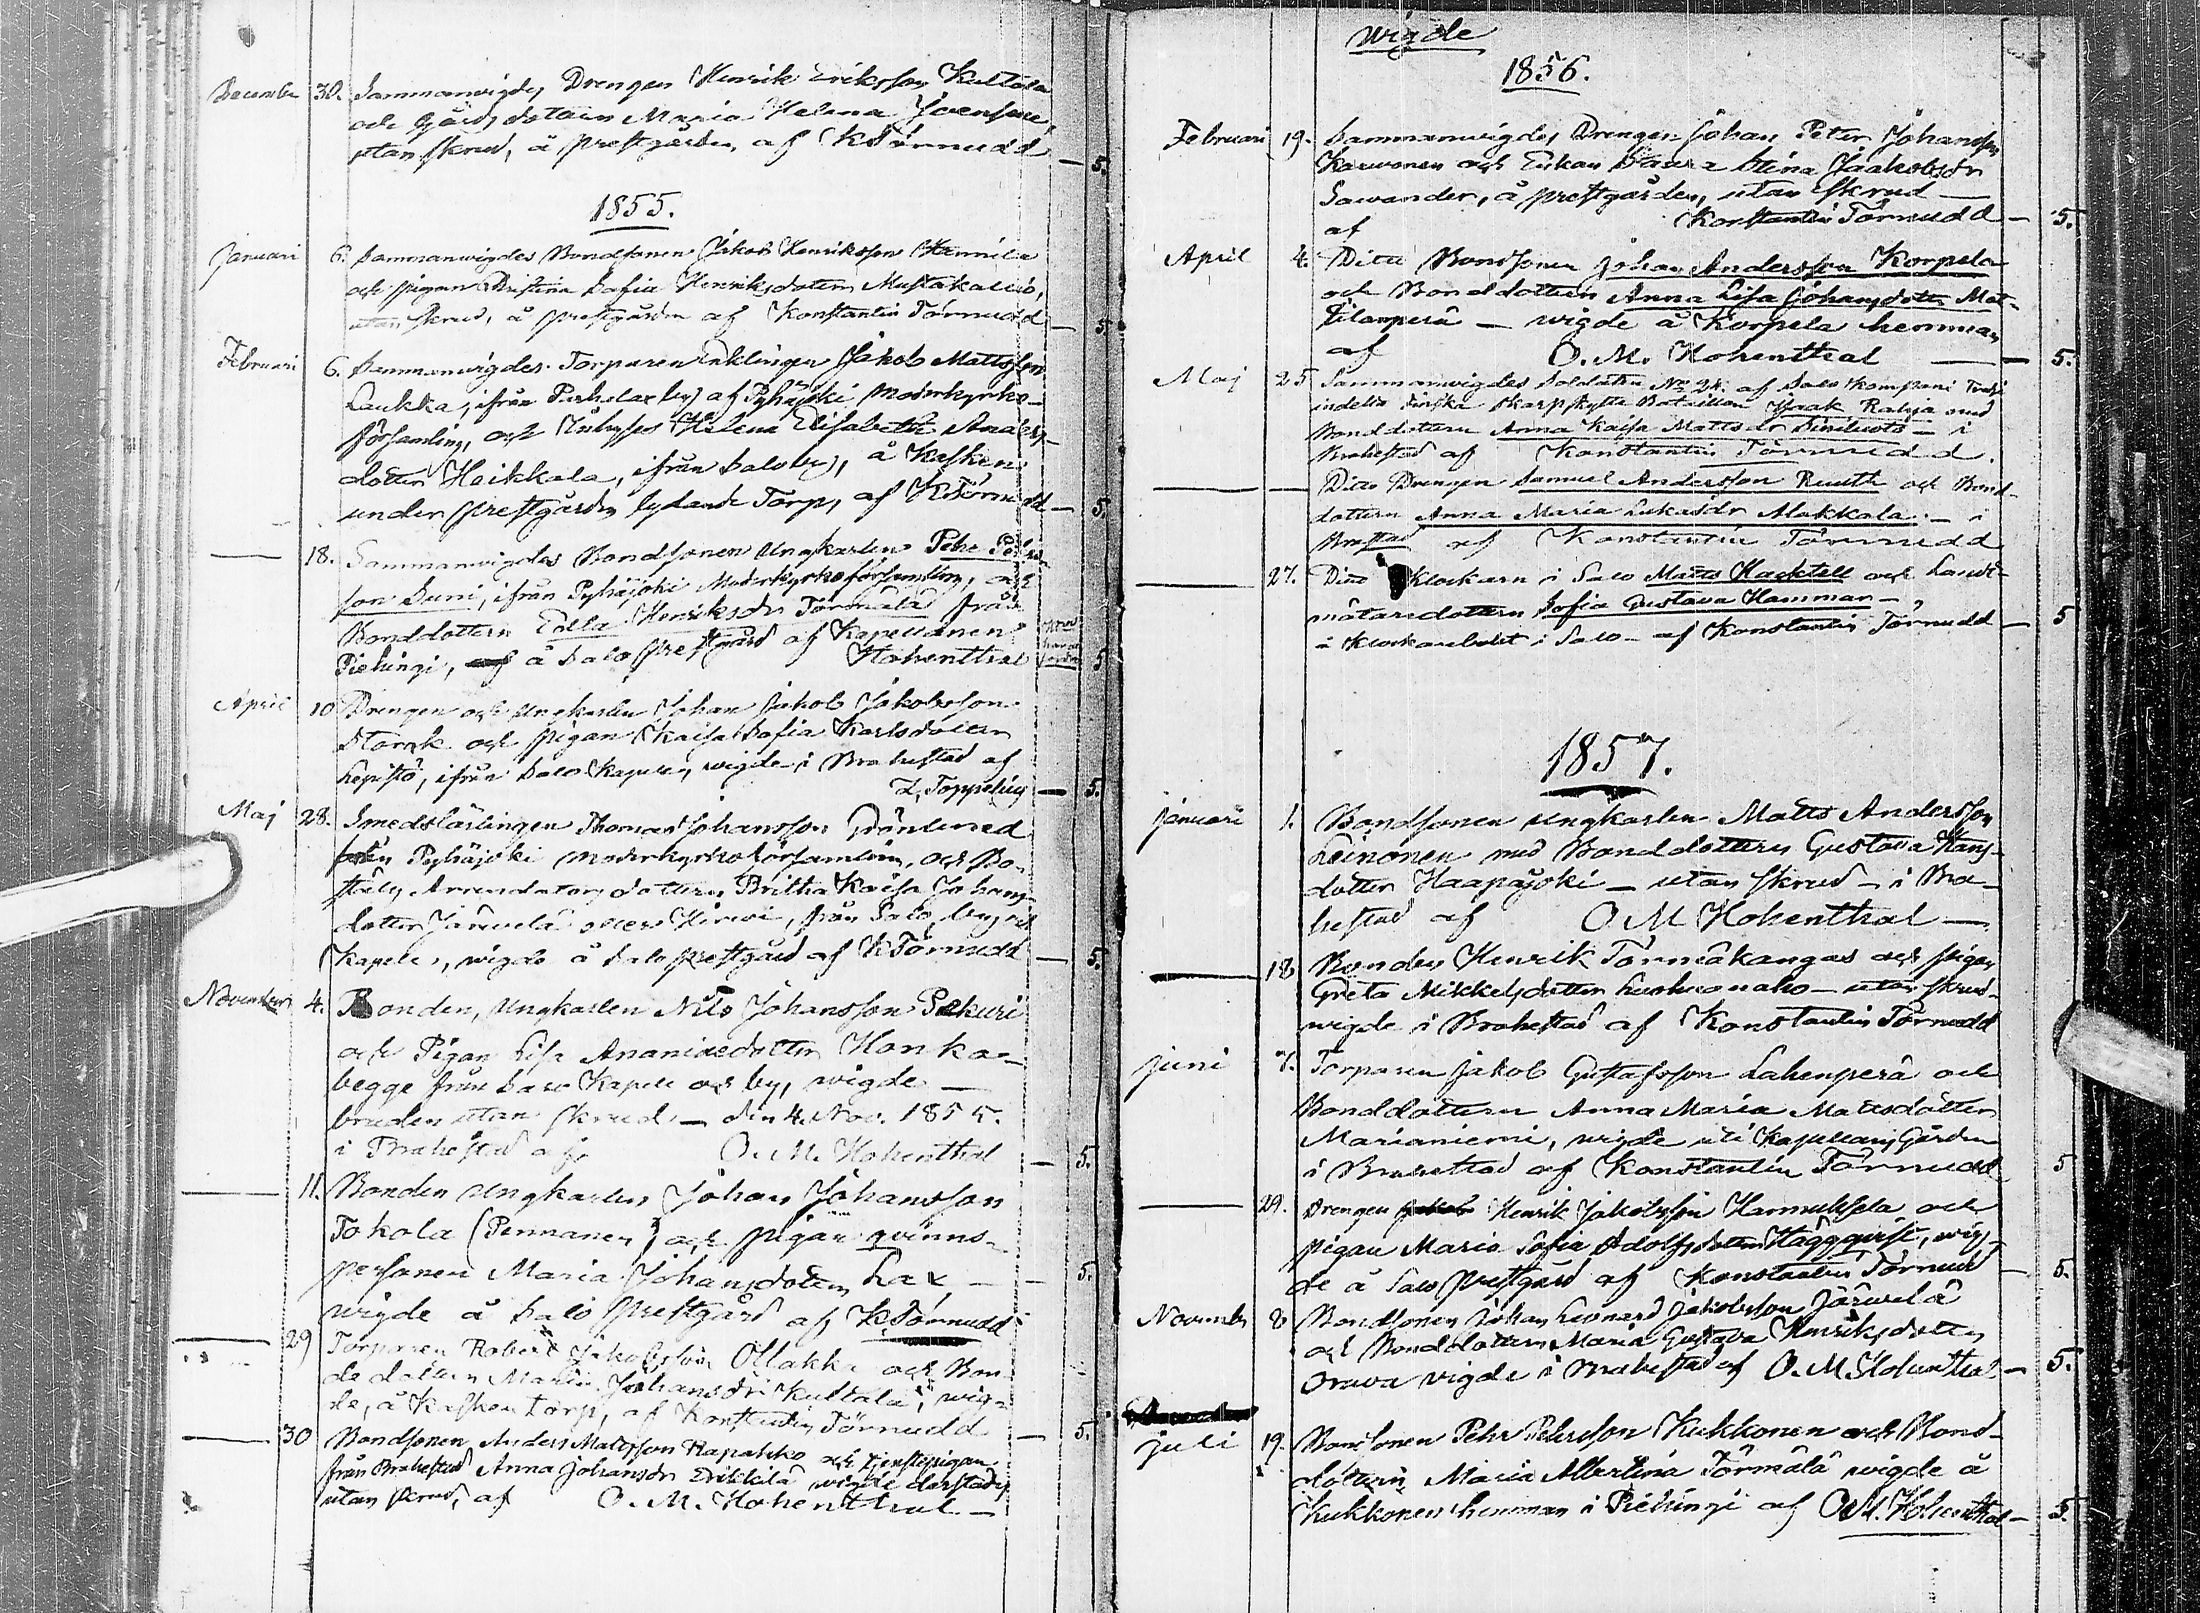 December 30. Sammanvigdes Drengen Henrik Eriksson Kultala
och Gårds dottern Maria Helena
utan skrud, å prestgården af KTörnudd — 5.
1855.
Januari 6. Sammanwigdes Bondsonen Jakob Henriksson Hannila
och pigan Sofia Henriksdotter Mustakallio,
utan skrud, å prestgården af Konstantin Törnudd — 5
Februari 6. Sammanwigdes Torparen Enklingen Jakob Mattsson
Laukka, ifrån by af Pyhäjoki Moderkyrko-
församling, och Helena Elisabeth
dotter Heikkala, ifrån Salo by, å Kasken
under prestgården lydande Torp, af KTörnudd — 5.
— 18. Sammanwigdes Bondsonen Ungkarlen Pehr
son Suni, ifrån Pyhäjoki Moderkyrkoförsamling, och
Bonddottern Henriksdr Törmälä från
Piehingi, å Salo prestgård af Kapellanen
Hohenthal 5
April 10 Drengen och Ungkarlen Johan Jakob Jakobsson
Stark och pigan Kaisa Sofia Karlsdotter
Lepistö, ifrån Salo Kapell, wigde i Brahestad af
Z. Toppelius — 5.
Maj 28. Smedslärlingen Thomas Johansson Grönlund
från Pyhäjoki moderkyrkoförsamling, och Bo-
ställs Arrendators dottern Britha Kaisa Johans-
dotter Järwelä Hirwi, från Salo by och
Kapell, wigde å Salo prestgård af KTörnudd — 5.
November 4. Bonden, Ungkarlen Nils Johansson Pekuri
och Pigan Lisa Ananiaedotter Honka-
begge från Salo Kapell och by, wigde —
bruden utan skrud — den 4. Nov. 1855.
i Brahestad af O. M. Hohenthal — 5.
— 11. Bonden Ungkarlen Johan Johansson
Tokola (Pennanen) och pigan qvinns-
personen Maria Johansdotter Lax, — 5.
wigde å Salo prestgård af K.Törnudd
— 29 Torparen Robert Jakobsson Ollakka och Bon-
de dottern Maria Johansdr Kultala, wig-
de, å Kasken torp, af Konstantin Törnudd — 5.
— 30 Bondsonen Anders Mattsson Rapakko och tjenstepigan
från Brahestad Anna Johansdr Erikkilä wigde derstädes
utan skrud, af O. M. Hohenthal —
Wigde
1856.
Februari 19. Sammanwigdes Drengen Johan Peter Johansson
Karwonen och Enkan Stina Jaakobsdr
Sawander, å prestgården, utan skrud —
af Konstantin Törnudd — 5.
April 4. Dito Bondsonen Johan Andersson Korpela
och Bonddottern Anna Lisa Johansdotter Mat-
tilanperä — wigde å Korpela hemman
af O. M. Hohenthal — 5.
Maj 25 Sammanwigdes Soldaten No 24. af Salo Kompani
indelta Finska Skarpskytte Bataillon Isaak Rahja med
Bonddottern Anna Kaisa Mattsdr Siniluoto — i
Brahestad af Konstantin Törnudd.
— — Dito Drengen Samuel Andersson Ruuth och Bond-
dottern Anna Maria Lukasdr Alakkala — i
Brastad af Konstantin Törnudd
— 27. Dito Klockarn i Salo Matts Hacktell och Landt-
mätaredottern Sofia Gustava Hamman —
i Klockarebolet i Salo — af Konstantin Törnudd — 5
1857.
Januari 1. Bondsonen ungkarlen Matts Andersson
Leinonen med Bonddottern Gustava Hans-
dotter Haapajoki — utan skrud — i Bra-
hestad af O M Hohenthal —
— 18 Bonden Henrik Törmäkangas och pigan
Greta Mikkelsdotter — utan skrud —
wigde i Brahestad af Konstantin Törnudd
Juni 7. Torparen Jakob Gustafsson Lahenperä och
Bonddottern Anna Maria Mattsdotter
Marianiemi, wigde uti Kapellans Gården
i Brahestad af Konstantin Törnudd 5
— 29. Drengen Henrik Jakobsson Hannuksela och
pigan Maria Sofia Adolfsdotter Häggqvist, wig-
de å Salo prestgård af Konstantin Törnudd — 5.
Novembr 8 Bondsonen Johan Leonard Jakobsson Järwelä
och Bonddottern Maria Gustava Henriksdotter
Orava vigde i Brahestad af O. M. Hohenthal — 5.
Juli 19. Bondsonen Pehr Pehrsson Kukkonen och Bond-
dottern Maria Albertina Törmälä wigde å
Kukkonen hemman i Piehingi af O.M. Hohenthal — 5.